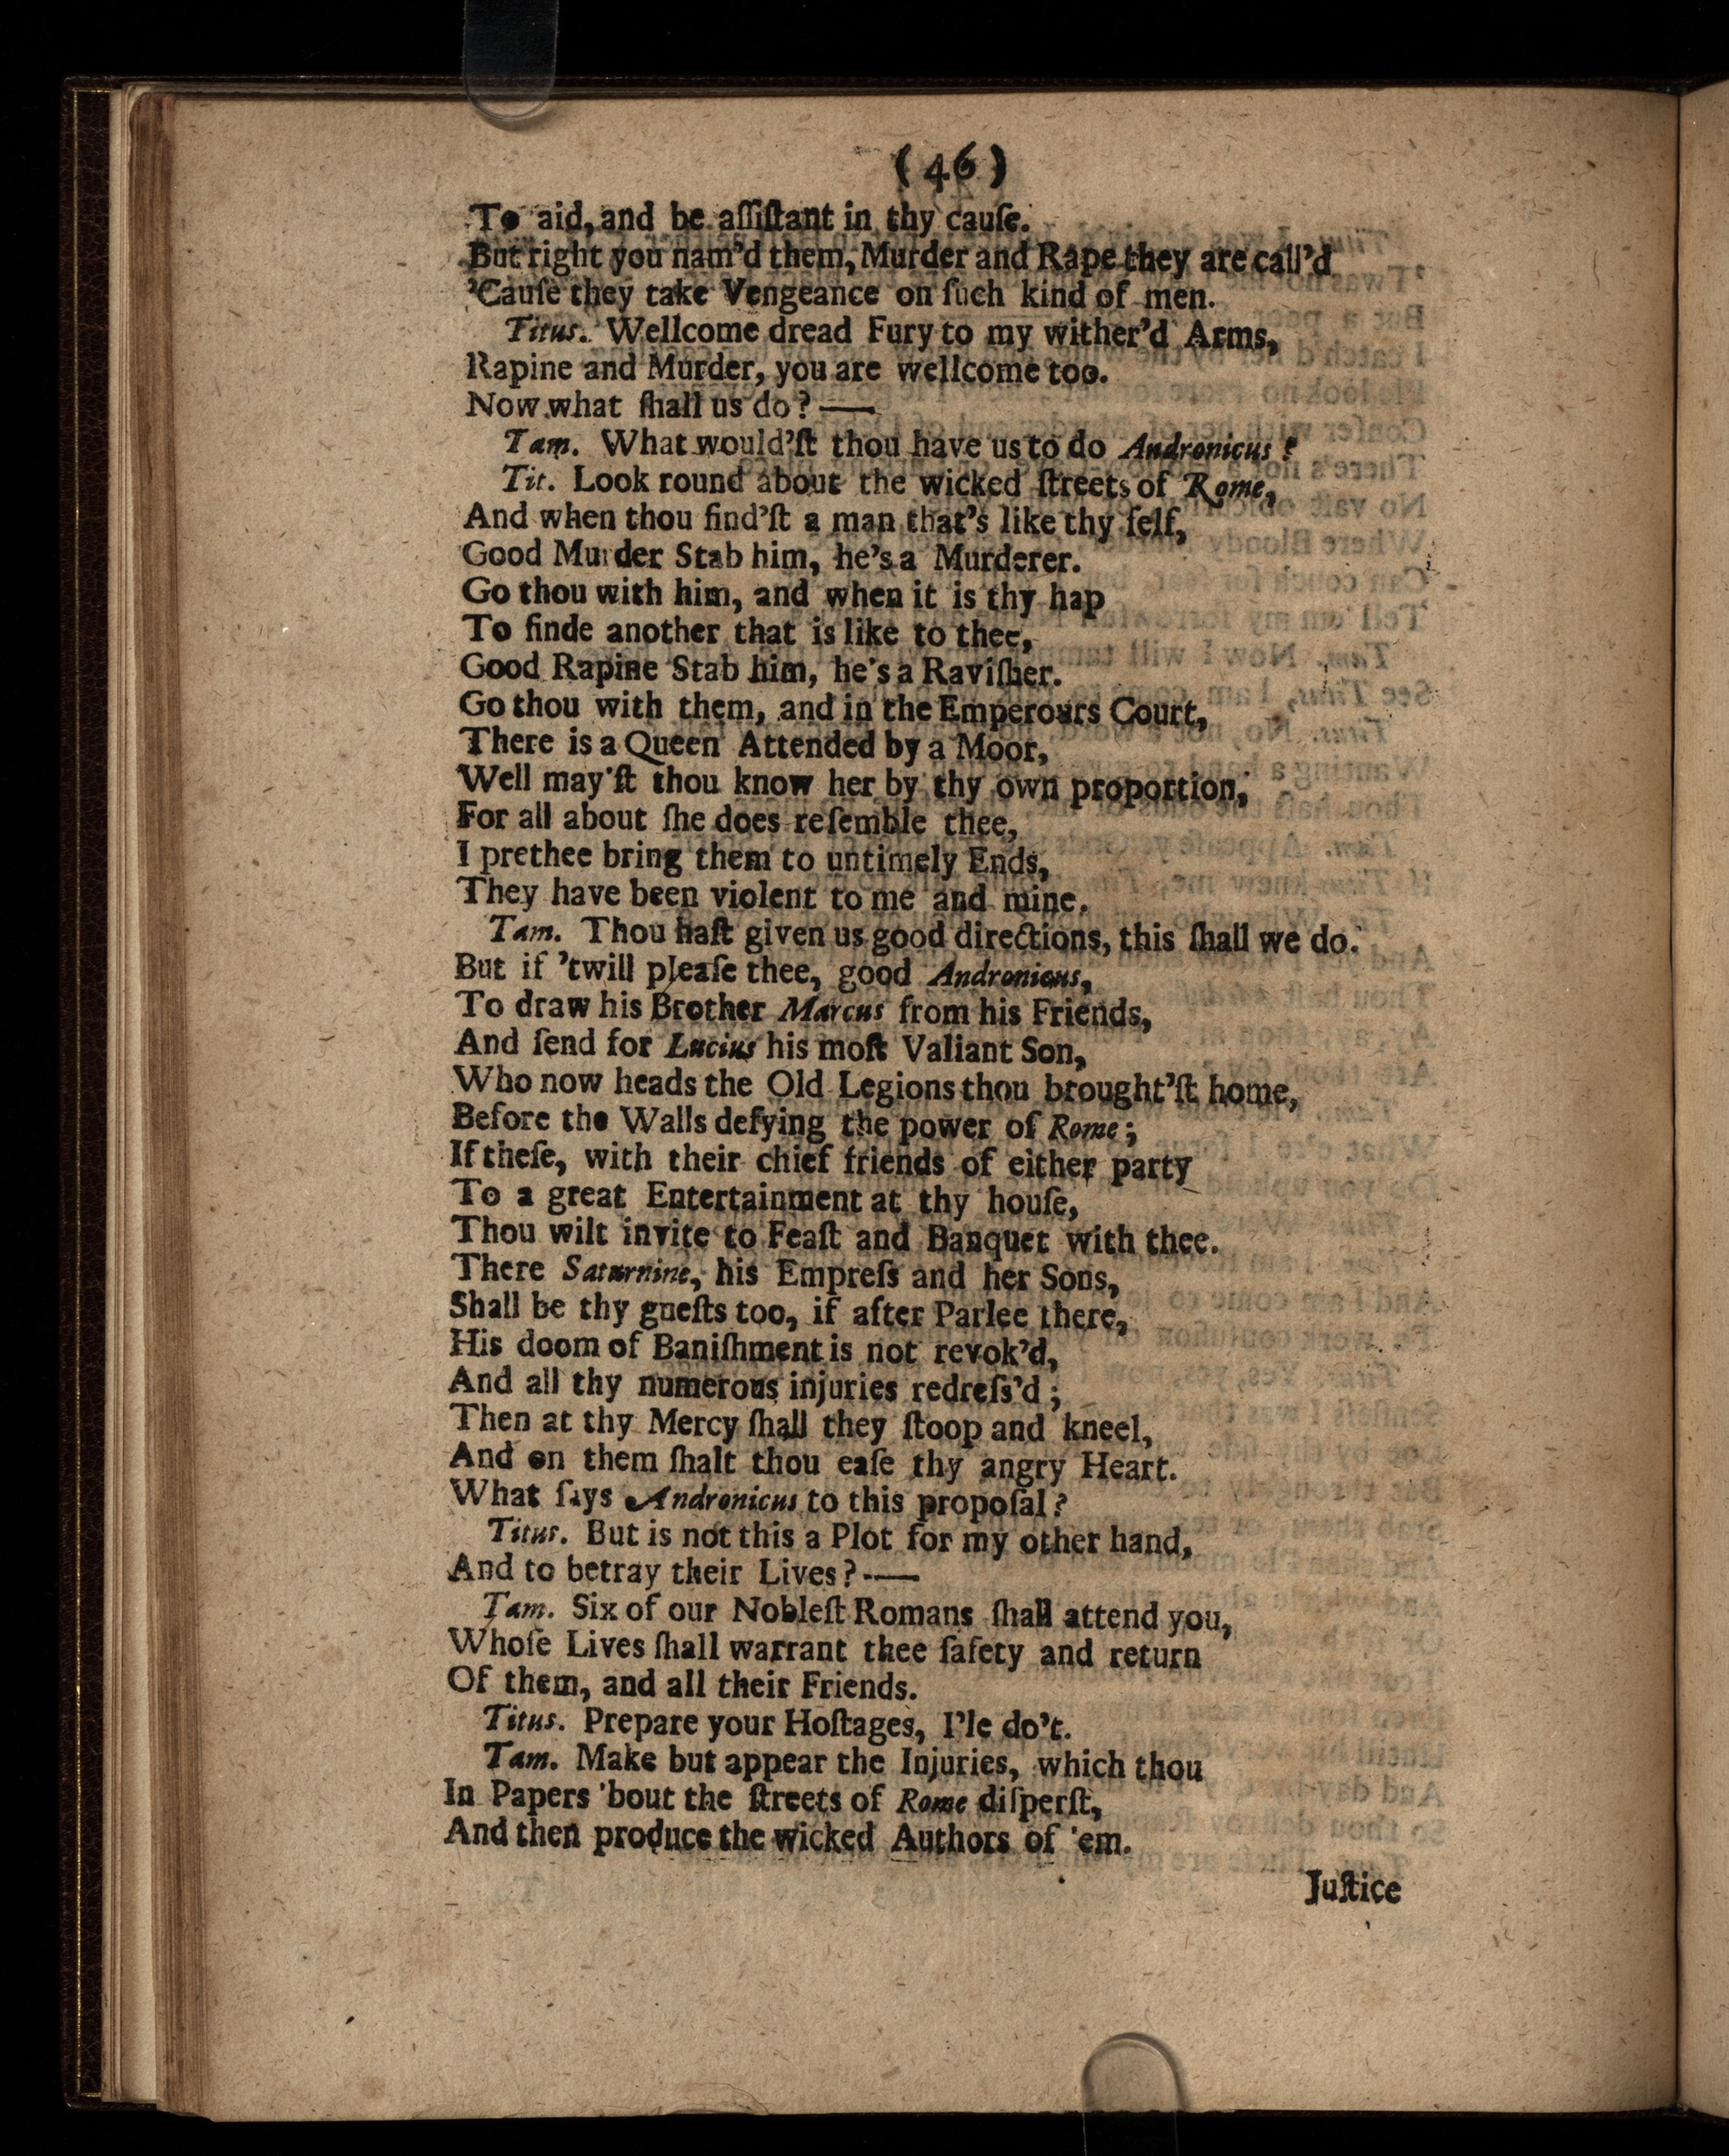 (46)
To aid, and be aſſiſtant in thy cauſe.
But right you nam'd them, Murder and Rape they are call'd
'Cauſe they take Vengeance on ſuch kind of men.
Titus. Wellcome dread Fury to my wither'd Arms,
Rapine and Murder, you are wellcome too.
Now what ſhall us do?——
Tam. What would'ſt thou have us to do Andronicus?
Tit. Look round about the wicked ſtreets of Rome,
And when thou find'ſt a man that's like thy ſelf,
Good Murder Stab him, he's a Murderer.
Go thou with him, and when it is thy hap
To finde another that is like to thee,
Good Rapine Stab him, he's a Raviſher.
Go thou with them, and in the Emperours Court,
There is a Queen Attended by a Moor,
Well may'ſt thou know her by thy own proportion,
For all about ſhe does reſemble thee,
I prethee bring them to untimely Ends,
They have been violent to me and mine.
Tam. Thou haſt given us good directions, this ſhall we do.
But if 'twill pleaſe thee, good Andronicus,
To draw his Brother Marcus from his Friends,
And ſend for Lucius his moſt Valiant Son,
Who now heads the Old Legions thou brought'ſt home,
Before the Walls defying the power of Rome;
If theſe, with their chief friends of either party
To a great Entertainment at thy houſe,
Thou wilt invite to Feaſt and Banquet with thee.
There Saturnine, his Empreſs and her Sons,
Shall be thy gueſts too, if after Parlee there,
His doom of Baniſhment is not revok'd,
And all thy numerous injuries redreſs'd;
Then at thy Mercy ſhall they ſtoop and kneel,
And on them ſhalt thou eaſe thy angry Heart.
What ſays Andronicus to this propoſal?
Titus. But is not this a Plot for my other hand,
And to betray their Lives?——
Tam. Six of our Nobleſt Romans ſhall attend you,
Whoſe Lives ſhall warrant thee ſafety and return
Of them, and all their Friends.
Titus. Prepare your Hoſtages, I'le do't.
Tam. Make but appear the Injuries, which thou
In Papers 'bout the ſtreets of Rome diſperſt,
And then produce the wicked Authors of 'em.
Juſtice